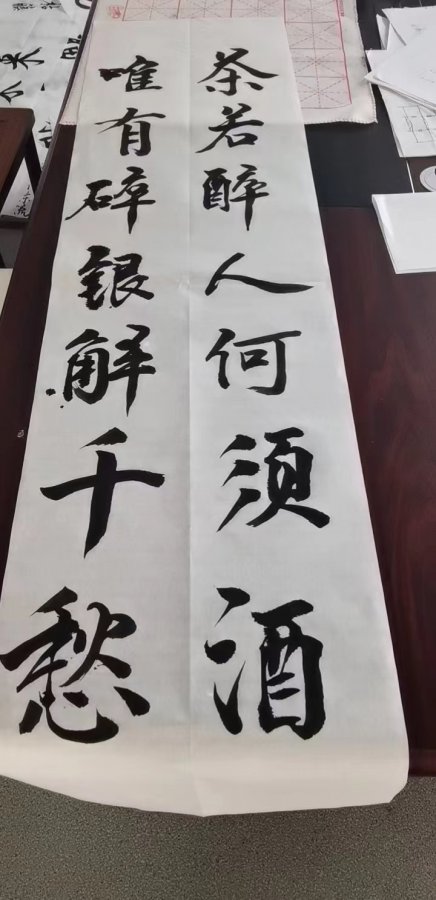 茶若醉人何须酒
唯有碎银解千愁